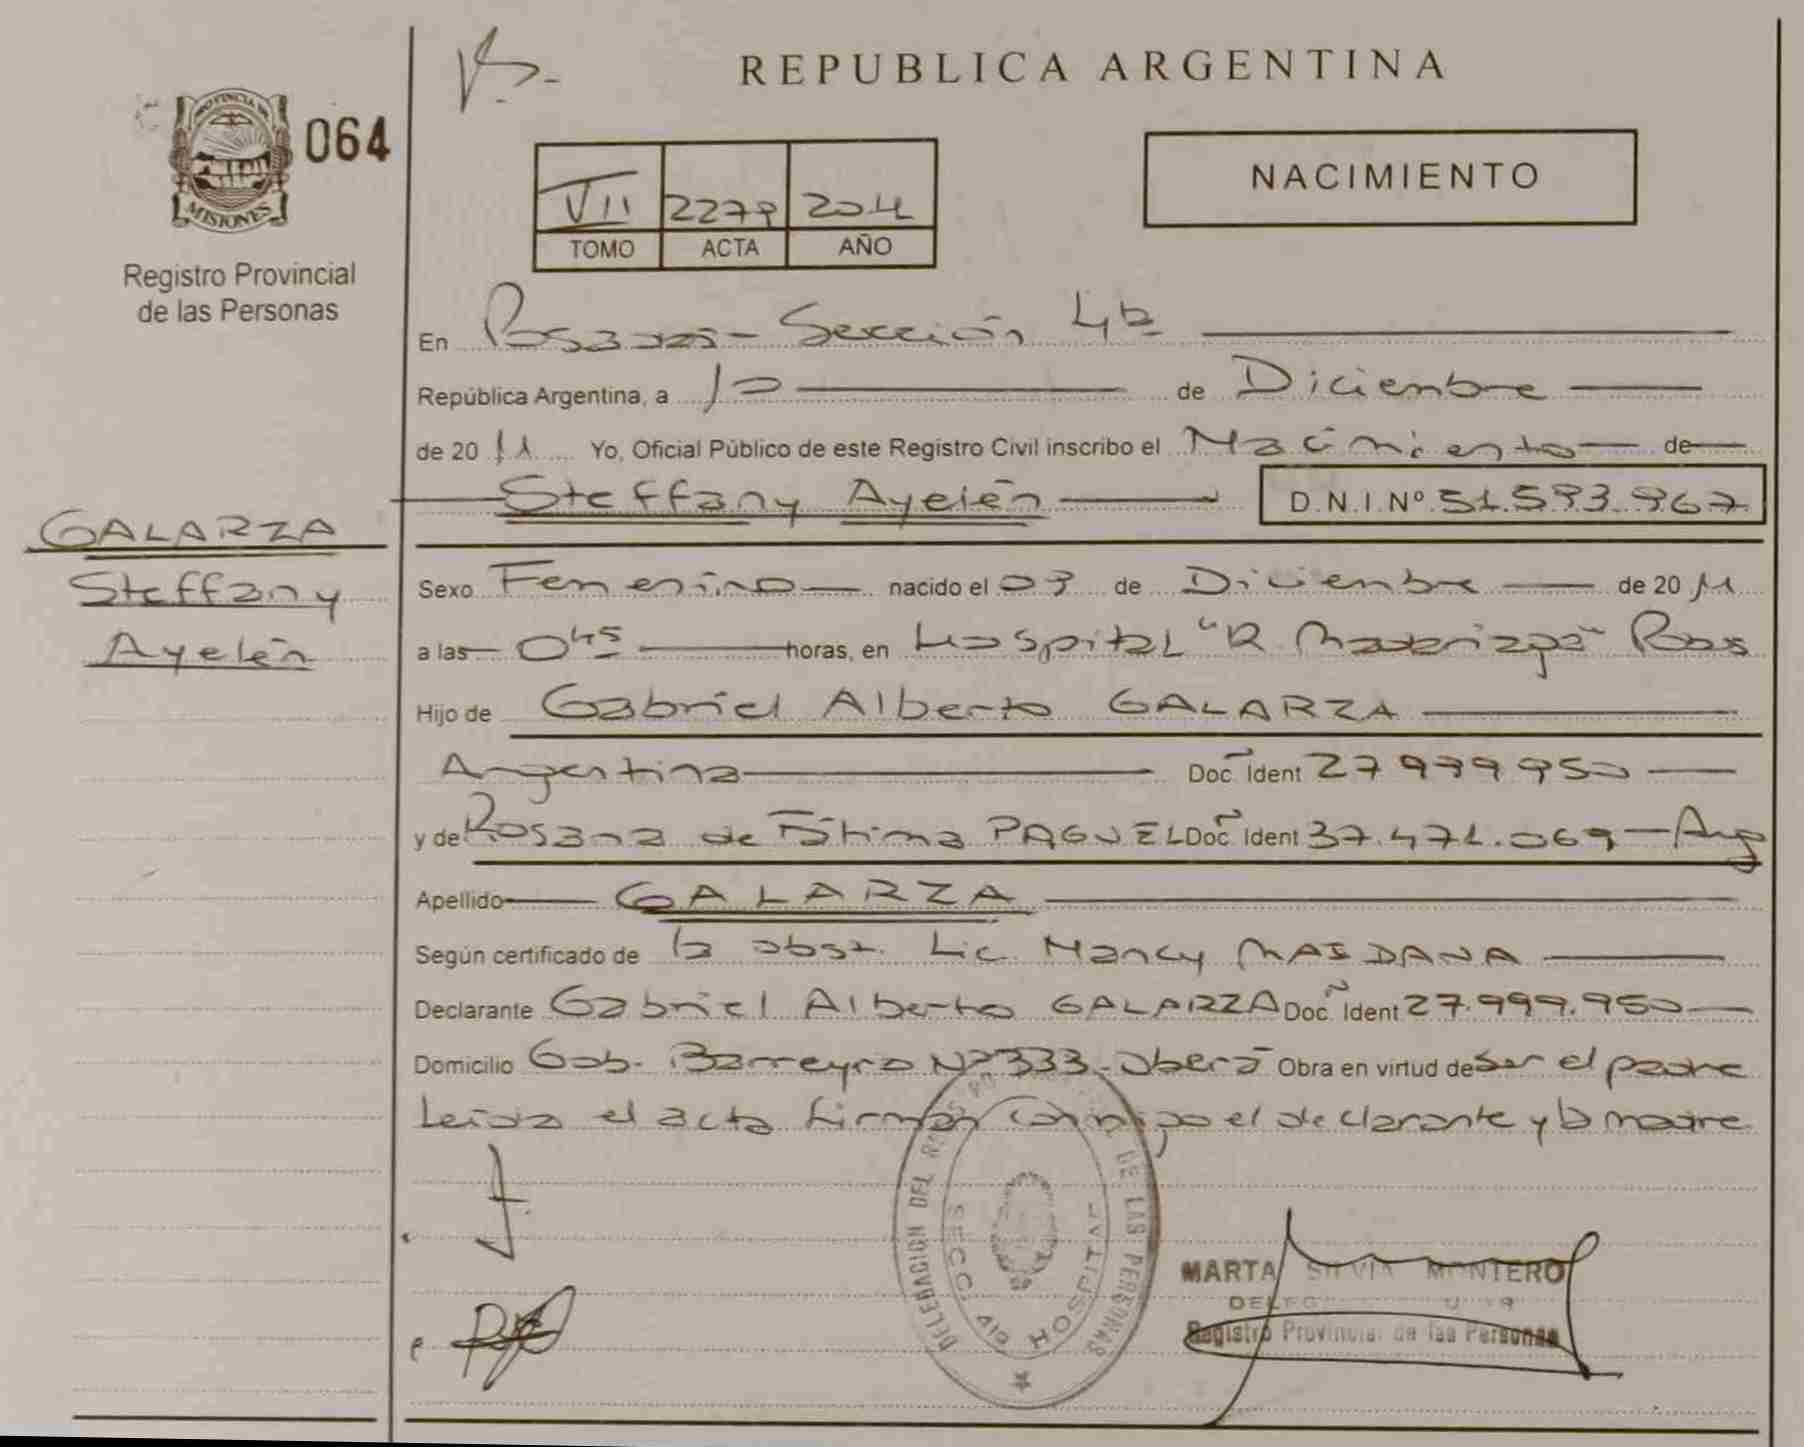 REPUBLICA ARGENTINA
PROVINCIA DE
MISIONES
064
Registro Provincial
de las Personas
NACIMIENTO
VII 2279 2011
TOMO ACTA AÑO
En Posadas - Sección 4ta
República Argentina, a 10 de Diciembre
de 2011 Yo, Oficial Público de este Registro Civil inscribo el Nacimiento de
Steffany Ayelén D.N.I.Nº 51.593.967
GALARZA
Steffany
Ayelén
Sexo Femenino nacido el 03 de Diciembre de 2011
a las 0 45 horas, en Hospital "R. Madariaga" Pdas
Hijo de Gabriel Alberto GALARZA
Argentina Doc. Ident 27.999.950
y de Rosana de Fátima PAGUEL Doc. Ident 37.471.069 - Arg
Apellido GALARZA
Según certificado de la obst. Lic. Nancy MAIDANA
Declarante Gabriel Alberto GALARZA Doc. Ident 27.999.950
Domicilio Gob. Barreyro Nº 333 - Oberá Obra en virtud de ser el padre
Leída el acta firman conmigo el declarante y la madre
DE LAS PERSONAS
SECC. HOSPITAL
MARTA SILVIA MONTERO
Registro Provincial de las Personas